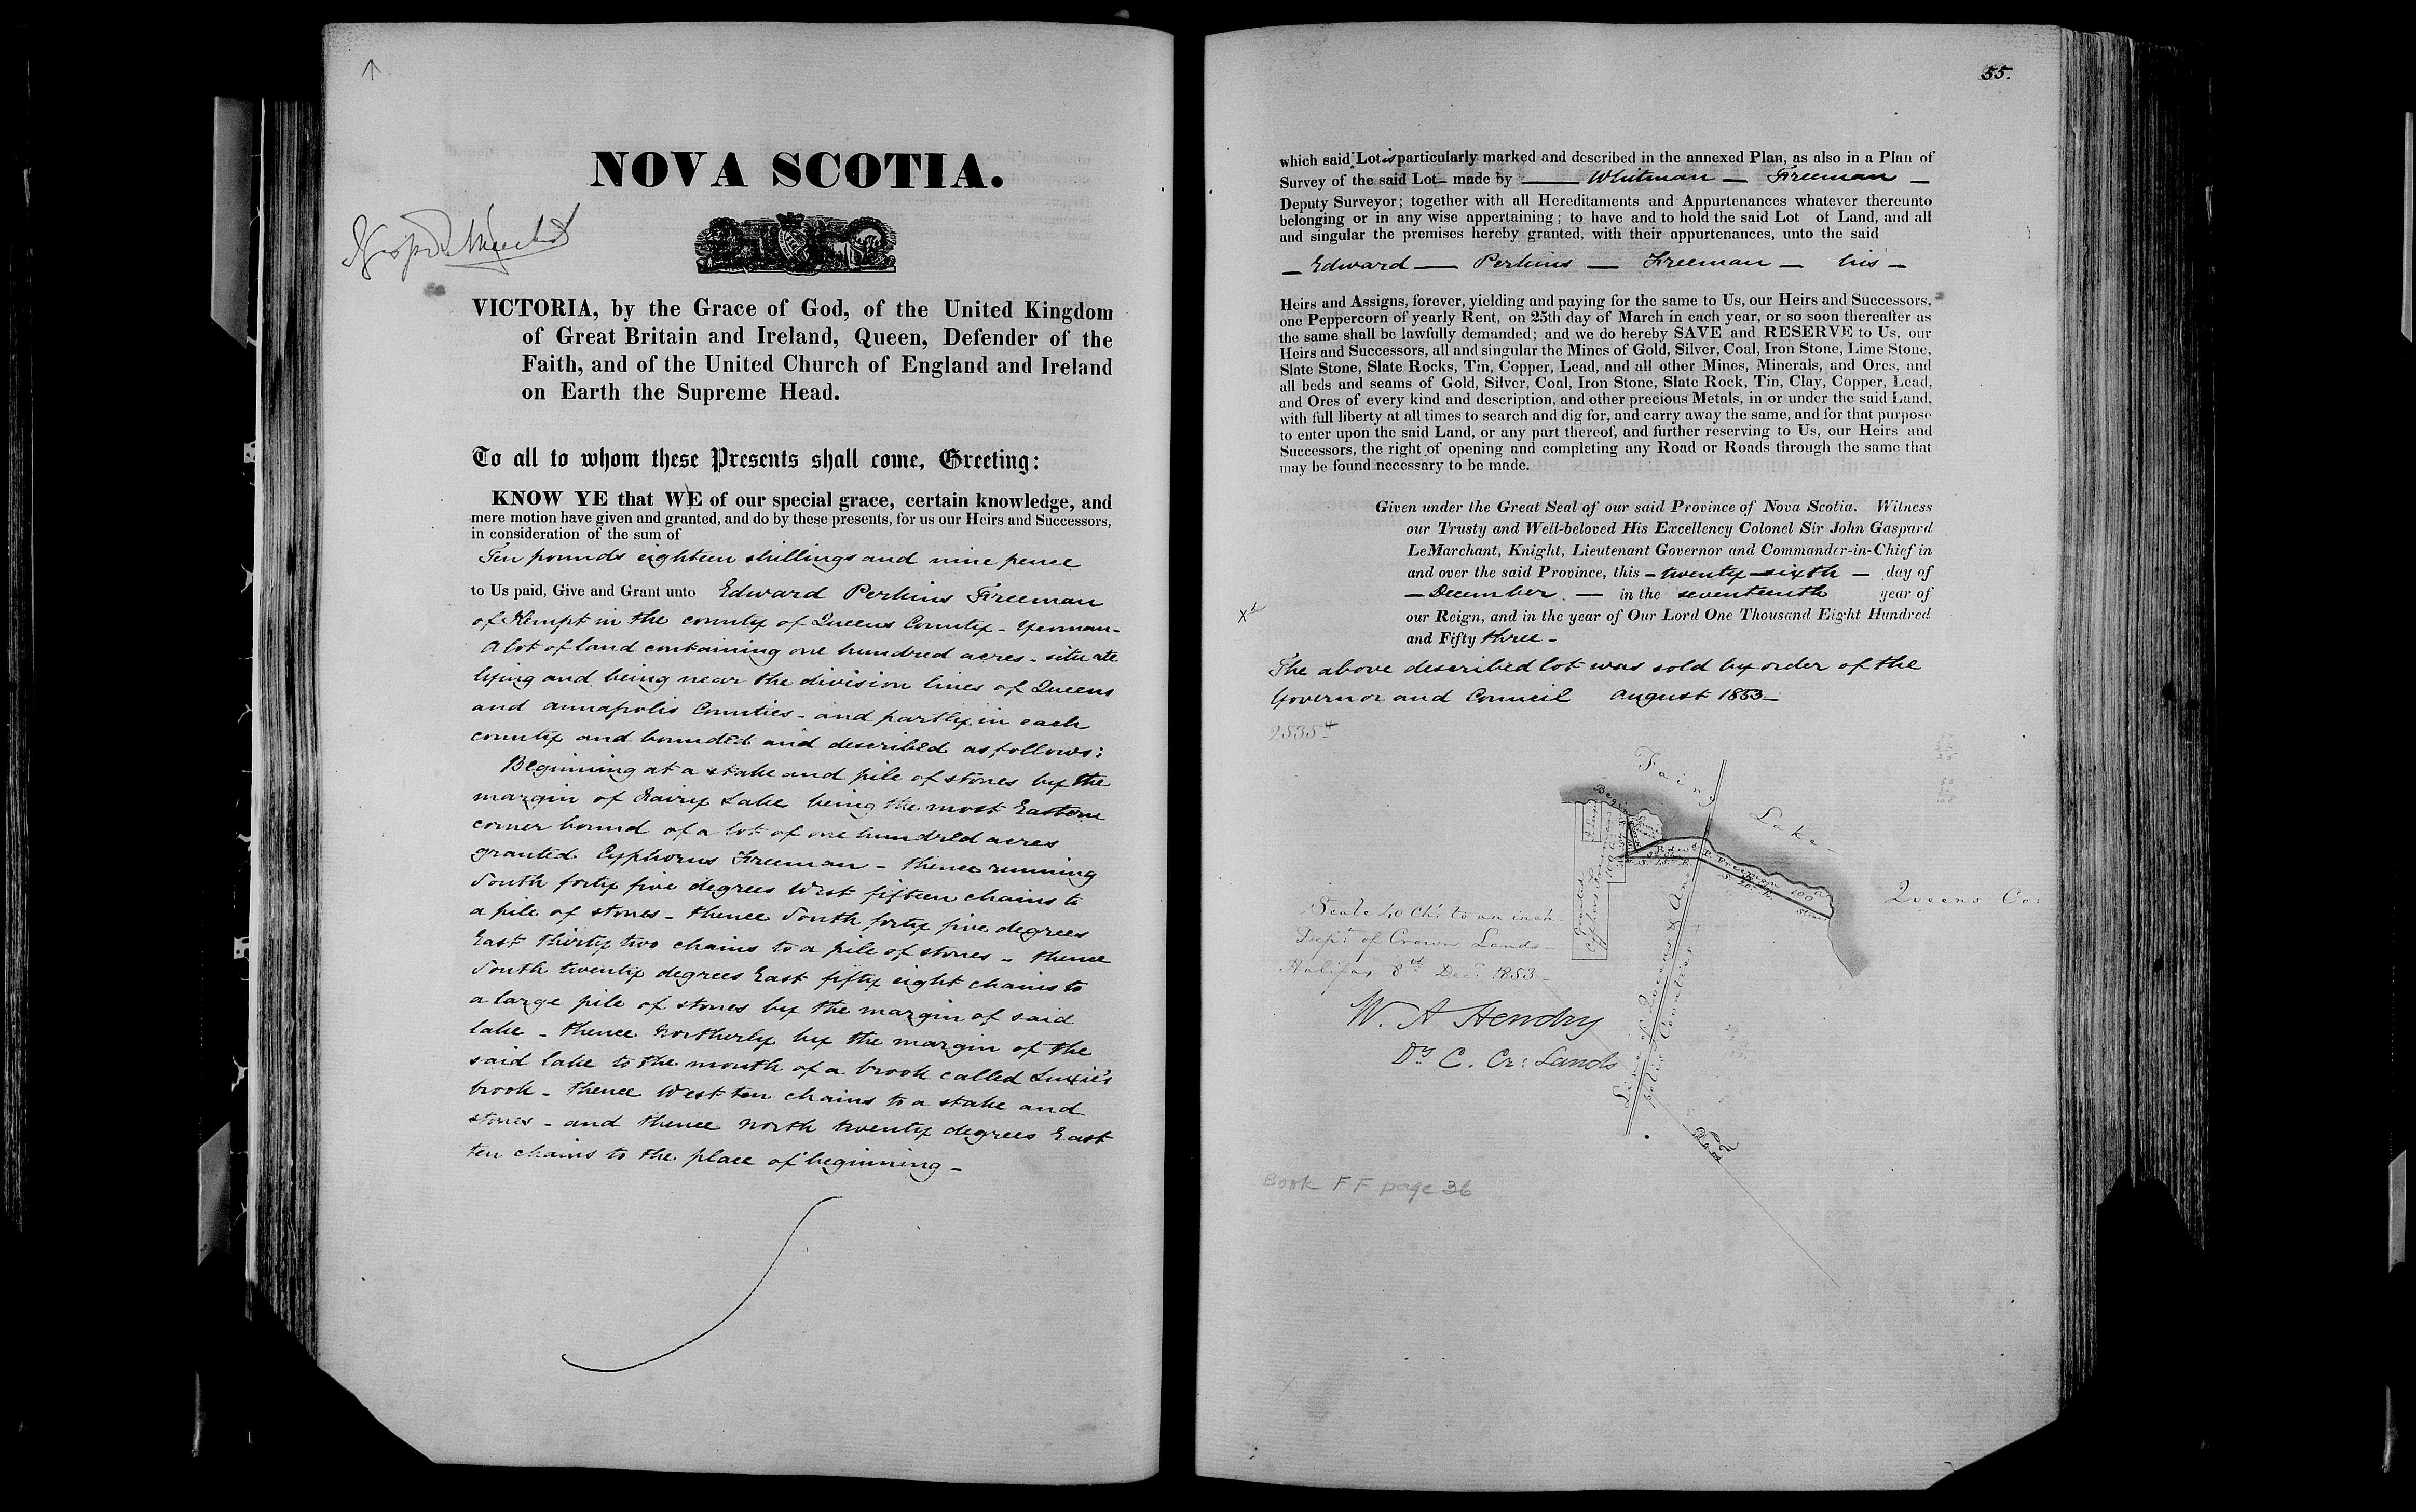 NOVA SCOTIA.
VICTORIA, by the Grace of God, of the United Kingdom
of Great Britain and Ireland, Queen, Defender of the
Faith, and of the United Church of England and Ireland
on Earth the Supreme Head.
To all to whom these Presents shall come, Greeting:
KNOW YE that WE of our special grace, certain knowledge, and
mere motion have given and granted, and do by these presents, for us our Heirs and Successors,
in consideration of the sum of
Ten pounds eighteen shillings and nine pence
to Us paid, Give and Grant unto Edward Perkins Freeman
of Kempt in the county of Queens County - Yeoman -
A lot of land containing one hundred acres - situate
lying and being near the division lines of Queens
and Annapolis Counties - and partly in each
county and bounded and described as follows:
Beginning at a stake and pile of stones by the
margin of Fairy Lake being the most Eastern
corner bound of a lot of one hundred acres
granted Cyphorus Freeman - thence running
South forty five degrees West fifteen chains to
a pile of stones - thence South forty five degrees
East thirty two chains to a pile of stones - thence
South twenty degrees East fifty eight chains to
a large pile of stones by the margin of said
lake - thence Northerly by the margin of the
said lake to the mouth of a brook called
brook - thence West ten chains to a stake and
stones - and thence North twenty degrees East
ten chains to the place of beginning -
55.
which said Lot is particularly marked and described in the annexed Plan, as also in a Plan of
Survey of the said Lot made by Whitman Freeman
Deputy Surveyor; together with all Hereditaments and Appurtenances whatever thereunto
belonging or in any wise appertaining; to have and to hold the said Lot of Land, and all
and singular the premises hereby granted, with their appurtenances, unto the said
- Edward - Perkins - Freeman - his -
Heirs and Assigns, forever, yielding and paying for the same to Us, our Heirs and Successors,
one Peppercorn of yearly Rent, on 25th day of March in each year, or so soon thereafter as
the same shall be lawfully demanded; and we do hereby SAVE and RESERVE to Us, our
Heirs and Successors, all and singular the Mines of Gold, Silver, Coal, Iron Stone, Lime Stone,
Slate Stone, Slate Rocks, Tin, Copper, Lead, and all other Mines, Minerals, and Ores, and
all beds and seams of Gold, Silver, Coal, Iron Stone, Slate Rock, Tin, Clay, Copper, Lead,
and Ores of every kind and description, and other precious Metals, in or under the said Land,
with full liberty at all times to search and dig for, and carry away the same, and for that purpose
to enter upon the said Land, or any part thereof, and further reserving to Us, our Heirs and
Successors, the right of opening and completing any Road or Roads through the same that
may be found necessary to be made.
Given under the Great Seal of our said Province of Nova Scotia. Witness
our Trusty and Well-beloved His Excellency Colonel Sir John Gaspard
LeMarchant, Knight, Lieutenant Governor and Commander-in-Chief in
and over the said Province, this - twenty-sixth - day of
- December - in the seventeenth year of
our Reign, and in the year of Our Lord One Thousand Eight Hundred
and Fifty three -
The above described lot was sold by order of the
Governor and Council August 1853 -
2535
Fairy Lake
Edwd P. Freeman 100 a
S. 20° E.
Stones
Granted
Cyphorus Freeman
100 a
Queens Co:
Scale 40 Chs to an inch
Dept of Crown Lands -
Halifax 8th Decr 1853 -
W. A Hendry
Dy C. Cr: Lands
Line of Queens & Annapolis Counties
Road
Book FF page 36